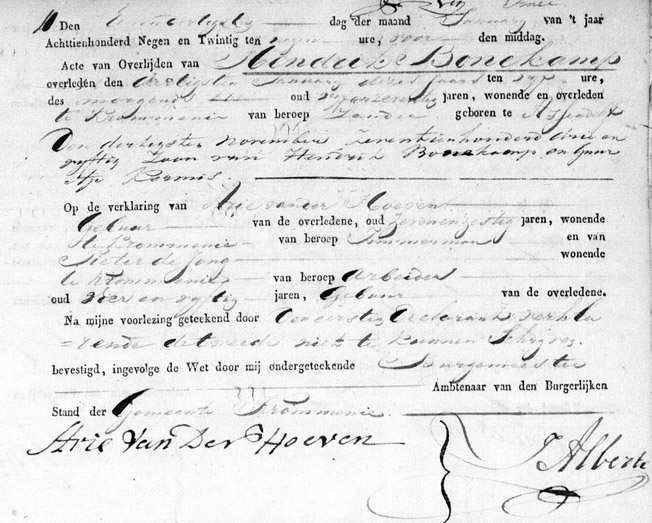 Den Eenendertigsten dag der maand January van 't jaar
Achttienhonderd Negen en Twintig ten negen ure, voor den middag.
Acte van Overlijden van Hendrik Bonekamp
overleden den dertigsten January dezes jaars ten ure,
des morgens oud jaren, wonende en overleden
te Krommenie van beroep zonder geboren te Assendelft
den dertigsten November Zeventienhonderd drie en
vyftig Zoon van Hendrik Bonekamp en
Op de verklaring van Arie van der Hoeven
Gebuur van de overledene, oud jaren, wonende
te Krommenie van beroep Timmerman en van
Pieter de Jong wonende
te Krommenie van beroep Arbeider
oud vier en vyftig jaren, Gebuur van de overledene.
Na mijne voorlezing geteekend door den eersten declarant verkla
=rende de tweede niet te kunnen Schryven.
bevestigd, ingevolge de Wet door mij ondergeteekende Burgemeester
Ambtenaar van den Burgerlijken
Stand der Gemeente Krommenie.
Arie Van Der Hoeven